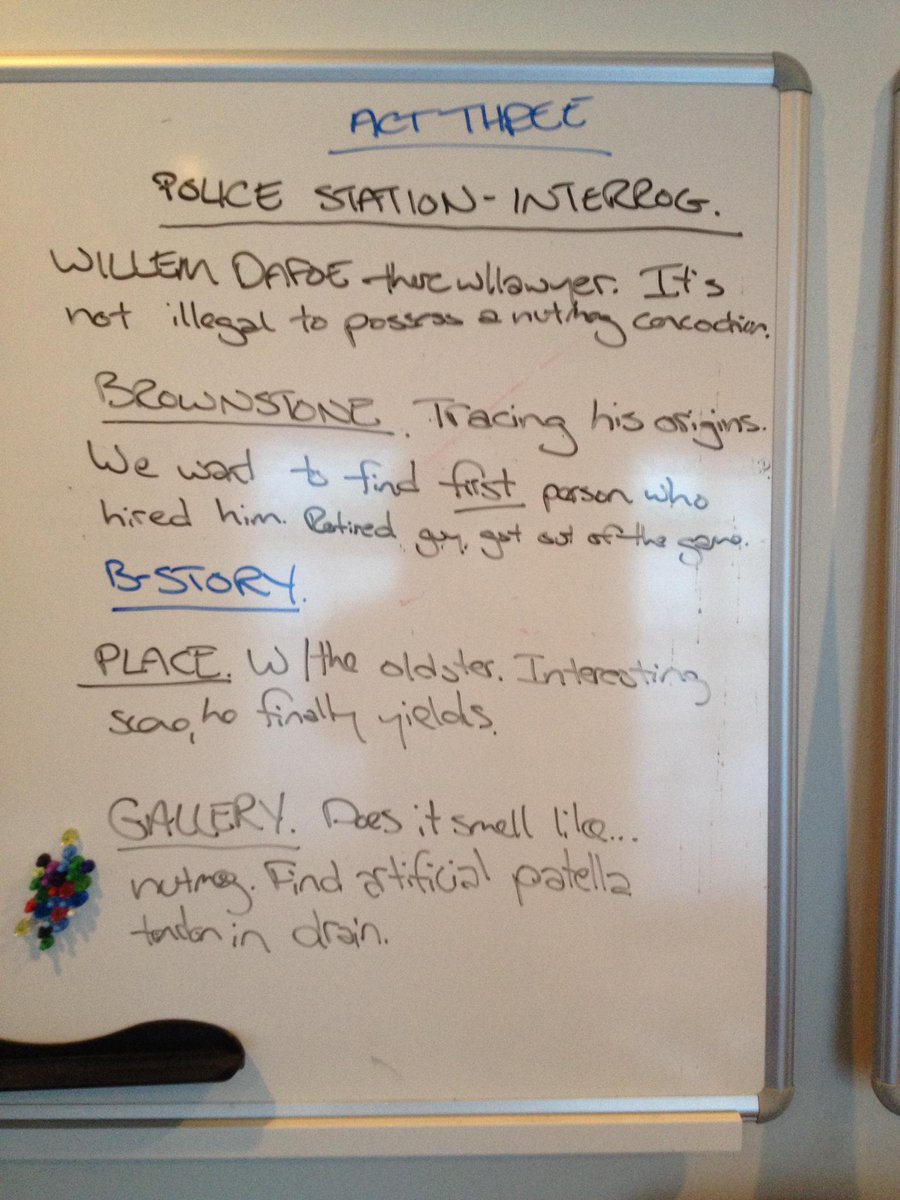 ACT THREE
POLICE STATION - INTERROG.
WILLEM DAFOE - there w/lawyer. It's
not illegal to possess a nutmeg concoction.
BROWNSTONE. Tracing his origins.
We want to find first person who
hired him. Retired guy, got out of the game.
B-STORY.
PLACE. W/the oldster. Interesting
he finally yields.
GALLERY. Does it smell like...
nutmeg. Find artificial patella
tendon in drain.